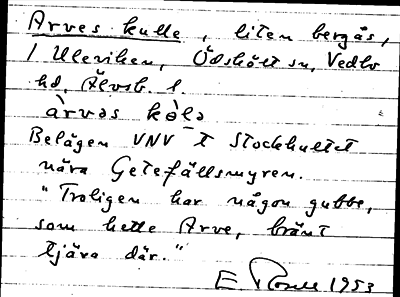 Arves kulle, liten bergås,
i Uleviken, Ödskölt sn, Vedbo
hd, Älvsb. l.
àrvəs kòlə
Belägen VNV t Stockhultet
nära Getefällsmyren.
"Troligen har någon gubbe,
som hette Arve, bränt
tjära där."
E. 1953